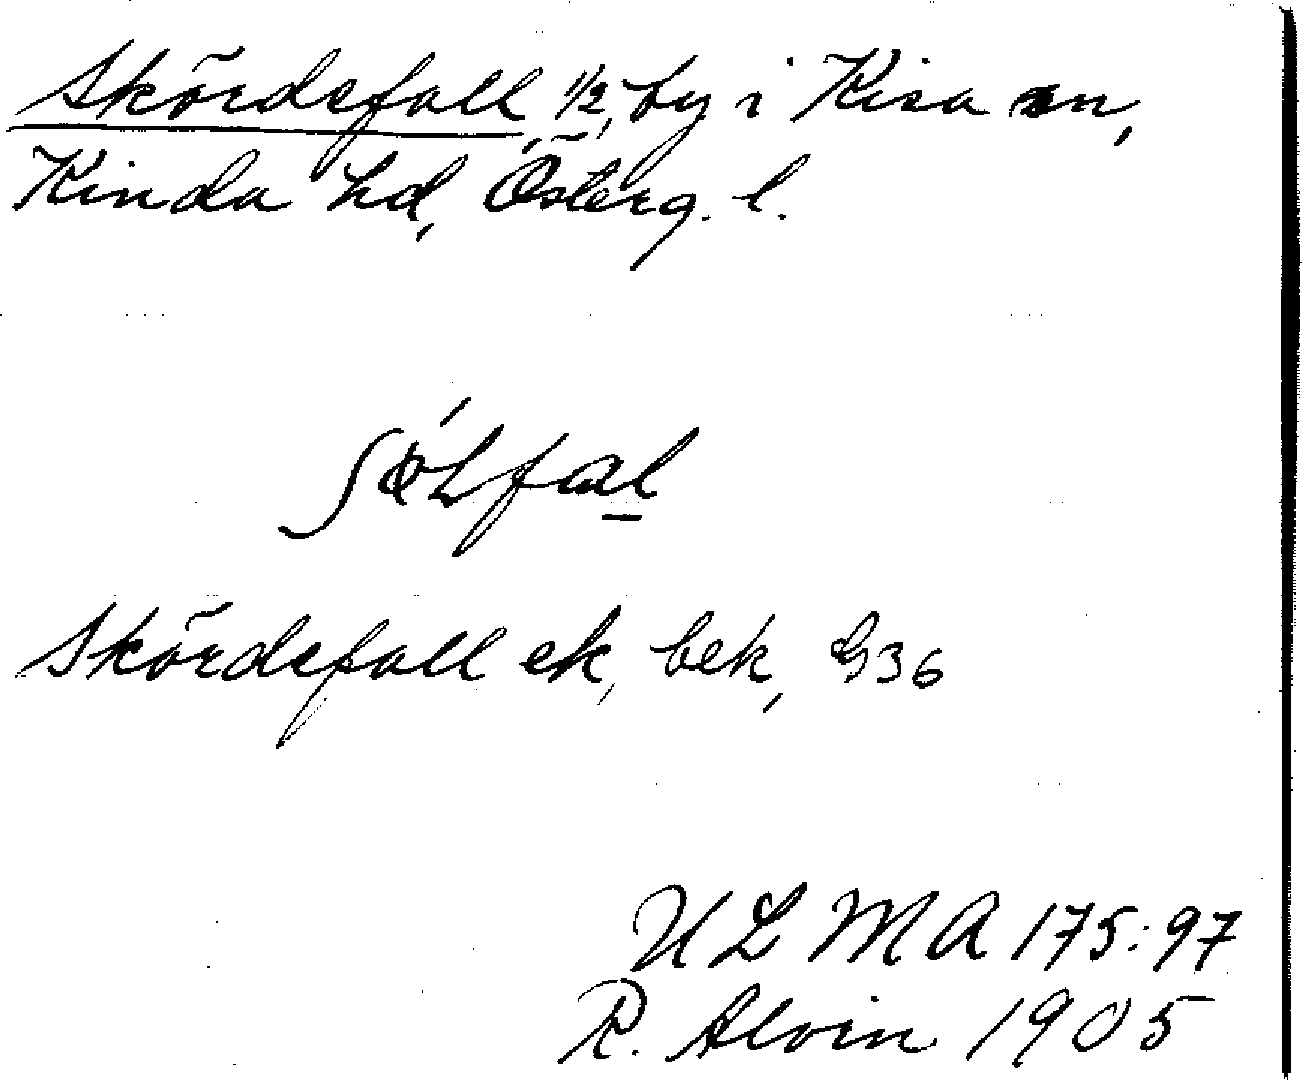 Skördefall, 1/2, by i Kisa sn,
Kinda hd, Österg. l.
Skördefall ek, bek, G36
ULMA 175:97
R. Alvin 1905